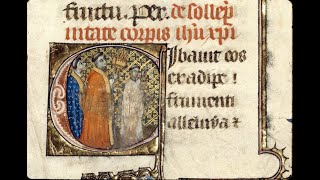 fructu. Per. de sollep
nitate corpis ihu xpi
Cibauit eos
ex adipe
frumenti
alleluya